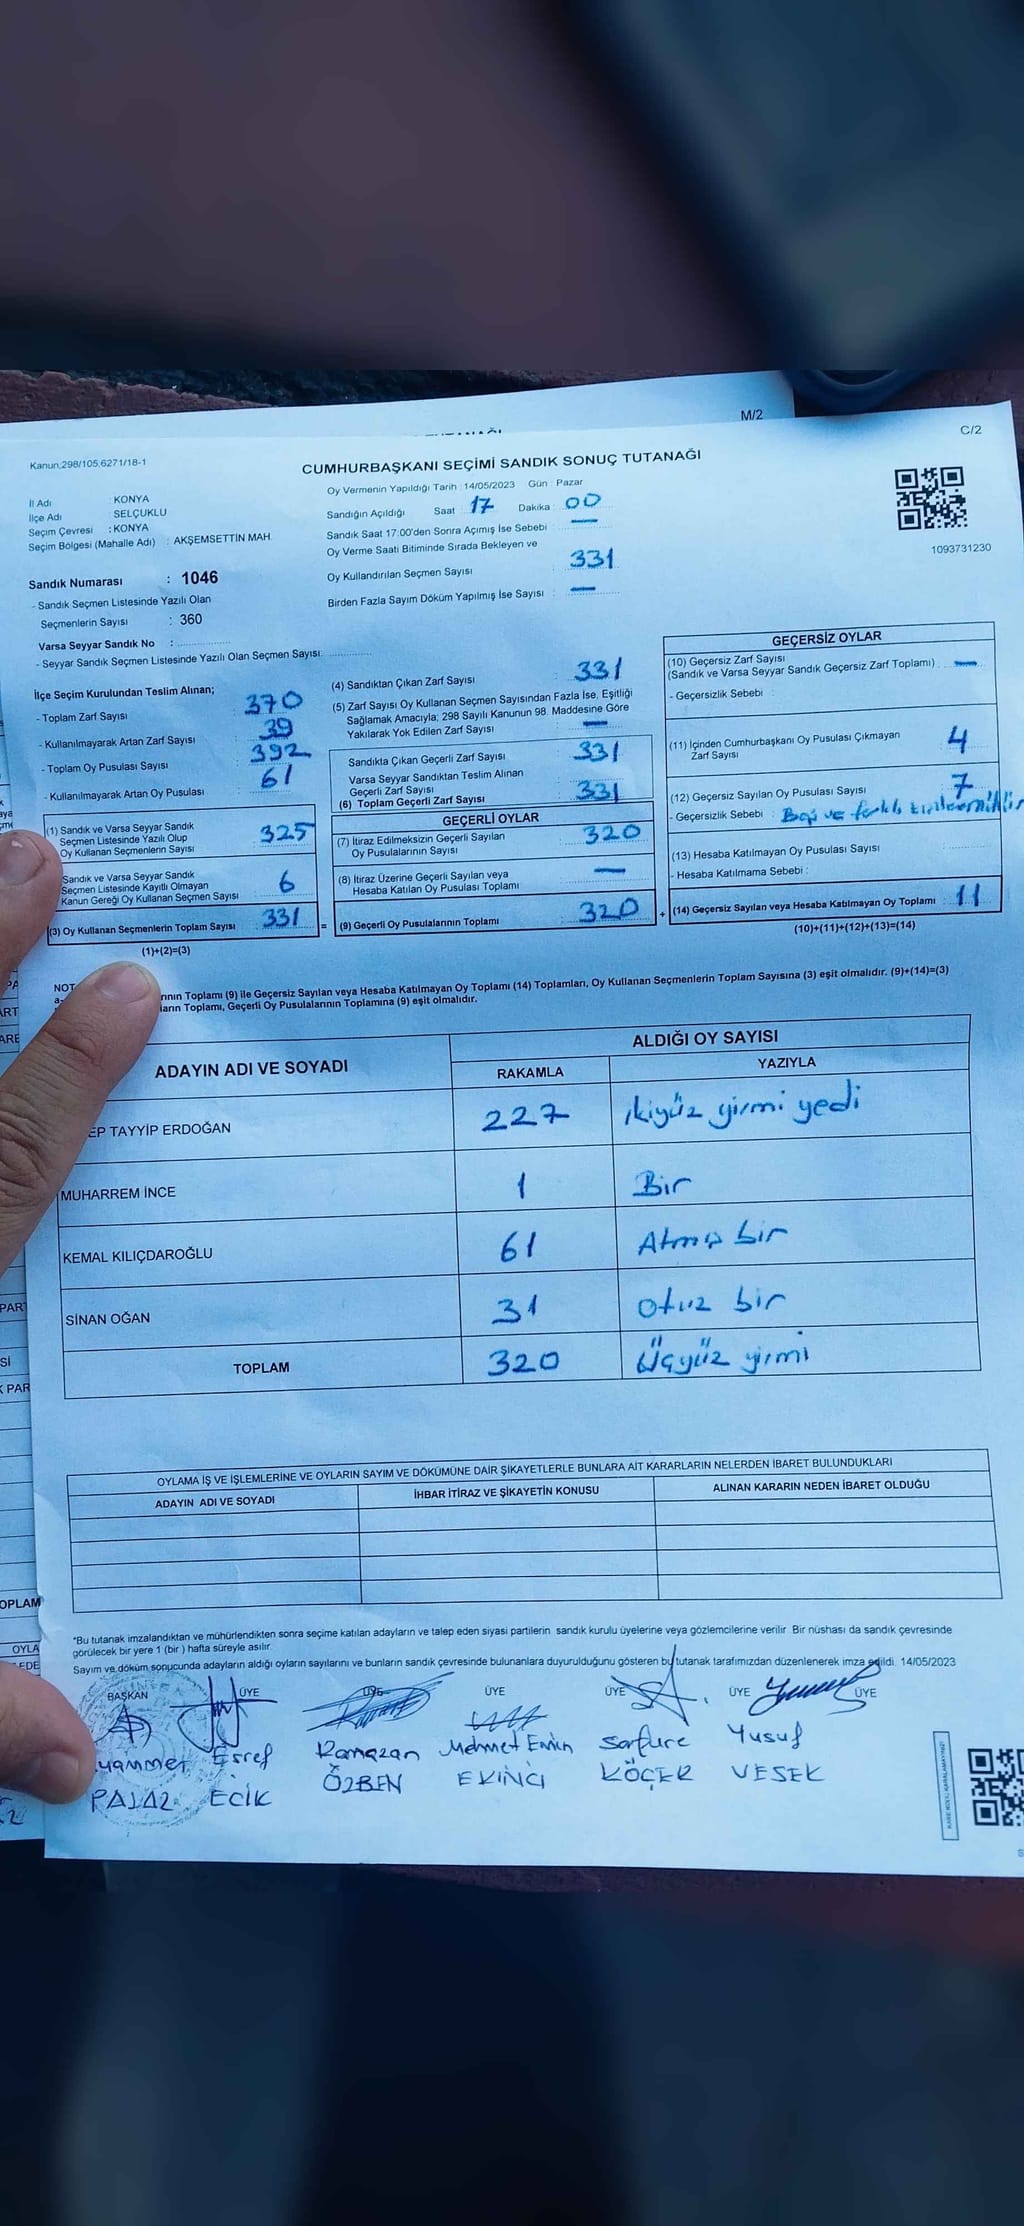 M/2
C/2
Kanun,298/105,6271/18-1
CUMHURBAŞKANI SEÇİMİ SANDIK SONUÇ TUTANAĞI
Oy Vermenin Yapıldığı Tarih : 14/05/2023 Gün : Pazar
İl Adı : KONYA
İlçe Adı : SELÇUKLU
Seçim Çevresi : KONYA
Seçim Bölgesi (Mahalle Adı) : AKŞEMSETTİN MAH.
Sandığın Açıldığı Saat 17 Dakika 00
Sandık Saat 17:00'den Sonra Açımış İse Sebebi : —
Oy Verme Saati Bitiminde Sırada Bekleyen ve
Oy Kullandırılan Seçmen Sayısı : 331
Birden Fazla Sayım Döküm Yapılmış İse Sayısı : —
1093731230
Sandık Numarası : 1046
- Sandık Seçmen Listesinde Yazılı Olan
Seçmenlerin Sayısı : 360
Varsa Seyyar Sandık No :
- Seyyar Sandık Seçmen Listesinde Yazılı Olan Seçmen Sayısı:
İlçe Seçim Kurulundan Teslim Alınan;
- Toplam Zarf Sayısı 370
- Kullanılmayarak Artan Zarf Sayısı 39
- Toplam Oy Pusulası Sayısı 392
- Kullanılmayarak Artan Oy Pusulası 61
(1) Sandık ve Varsa Seyyar Sandık
Seçmen Listesinde Yazılı Olup
Oy Kullanan Seçmenlerin Sayısı 325
Sandık ve Varsa Seyyar Sandık
Seçmen Listesinde Kayıtlı Olmayan
Kanun Gereği Oy Kullanan Seçmen Sayısı 6
(3) Oy Kullanan Seçmenlerin Toplam Sayısı 331 =
(1)+(2)=(3)
(4) Sandıktan Çıkan Zarf Sayısı : 331
(5) Zarf Sayısı Oy Kullanan Seçmen Sayısından Fazla İse, Eşitliği
Sağlamak Amacıyla; 298 Sayılı Kanunun 98. Maddesine Göre
Yakılarak Yok Edilen Zarf Sayısı —
Sandıkta Çıkan Geçerli Zarf Sayısı : 331
Varsa Seyyar Sandıktan Teslim Alınan
Geçerli Zarf Sayısı
(6) Toplam Geçerli Zarf Sayısı 331
GEÇERLİ OYLAR
(7) İtiraz Edilmeksizin Geçerli Sayılan
Oy Pusulalarının Sayısı 320
(8) İtiraz Üzerine Geçerli Sayılan veya
Hesaba Katılan Oy Pusulası Toplamı —
(9) Geçerli Oy Pusulalarının Toplamı 320 +
GEÇERSİZ OYLAR
(10) Geçersiz Zarf Sayısı
(Sandık ve Varsa Seyyar Sandık Geçersiz Zarf Toplamı) —
- Geçersizlik Sebebi :
(11) İçinden Cumhurbaşkanı Oy Pusulası Çıkmayan
Zarf Sayısı 4
(12) Geçersiz Sayılan Oy Pusulası Sayısı 7
- Geçersizlik Sebebi : Boş ve farklı
(13) Hesaba Katılmayan Oy Pusulası Sayısı
- Hesaba Katılmama Sebebi :
(14) Geçersiz Sayılan veya Hesaba Katılmayan Oy Toplamı 11
(10)+(11)+(12)+(13)=(14)
NOT
a-
Toplamı (9) ile Geçersiz Sayılan veya Hesaba Katılmayan Oy Toplamı (14) Toplamları, Oy Kullanan Seçmenlerin Toplam Sayısına (3) eşit olmalıdır. (9)+(14)=(3)
Toplamı, Geçerli Oy Pusulalarının Toplamına (9) eşit olmalıdır.
ADAYIN ADI VE SOYADI ALDIĞI OY SAYISI
RAKAMLA YAZIYLA
EP TAYYİP ERDOĞAN 227 ikiyüz yirmi yedi
MUHARREM İNCE 1 Bir
KEMAL KILIÇDAROĞLU 61 Atmış bir
SİNAN OĞAN 31 otuz bir
TOPLAM 320 Üçyüz yirmi
OYLAMA İŞ VE İŞLEMLERİNE VE OYLARIN SAYIM VE DÖKÜMÜNE DAİR ŞİKAYETLERLE BUNLARA AİT KARARLARIN NELERDEN İBARET BULUNDUKLARI
ADAYIN ADI VE SOYADI İHBAR İTİRAZ VE ŞİKAYETİN KONUSU ALINAN KARARIN NEDEN İBARET OLDUĞU
*Bu tutanak imzalandıktan ve mühürlendikten sonra seçime katılan adayların ve talep eden siyasi partilerin sandık kurulu üyelerine veya gözlemcilerine verilir. Bir nüshası da sandık çevresinde
görülecek bir yere 1 (bir ) hafta süreyle asılır.
Sayım ve döküm sonucunda adayların aldığı oyların sayılarını ve bunların sandık çevresinde bulunanlara duyurulduğunu gösteren bu tutanak tarafımızdan düzenlenerek imza edildi. 14/05/2023
BAŞKAN ÜYE ÜYE ÜYE ÜYE ÜYE ÜYE
Eşref Ramazan Mehmet Emin Yusuf
ECİK ÖZBEN EKİNCİ KÖÇER VESEK
PART
Sİ
K PAR
OPLAM
OYLA